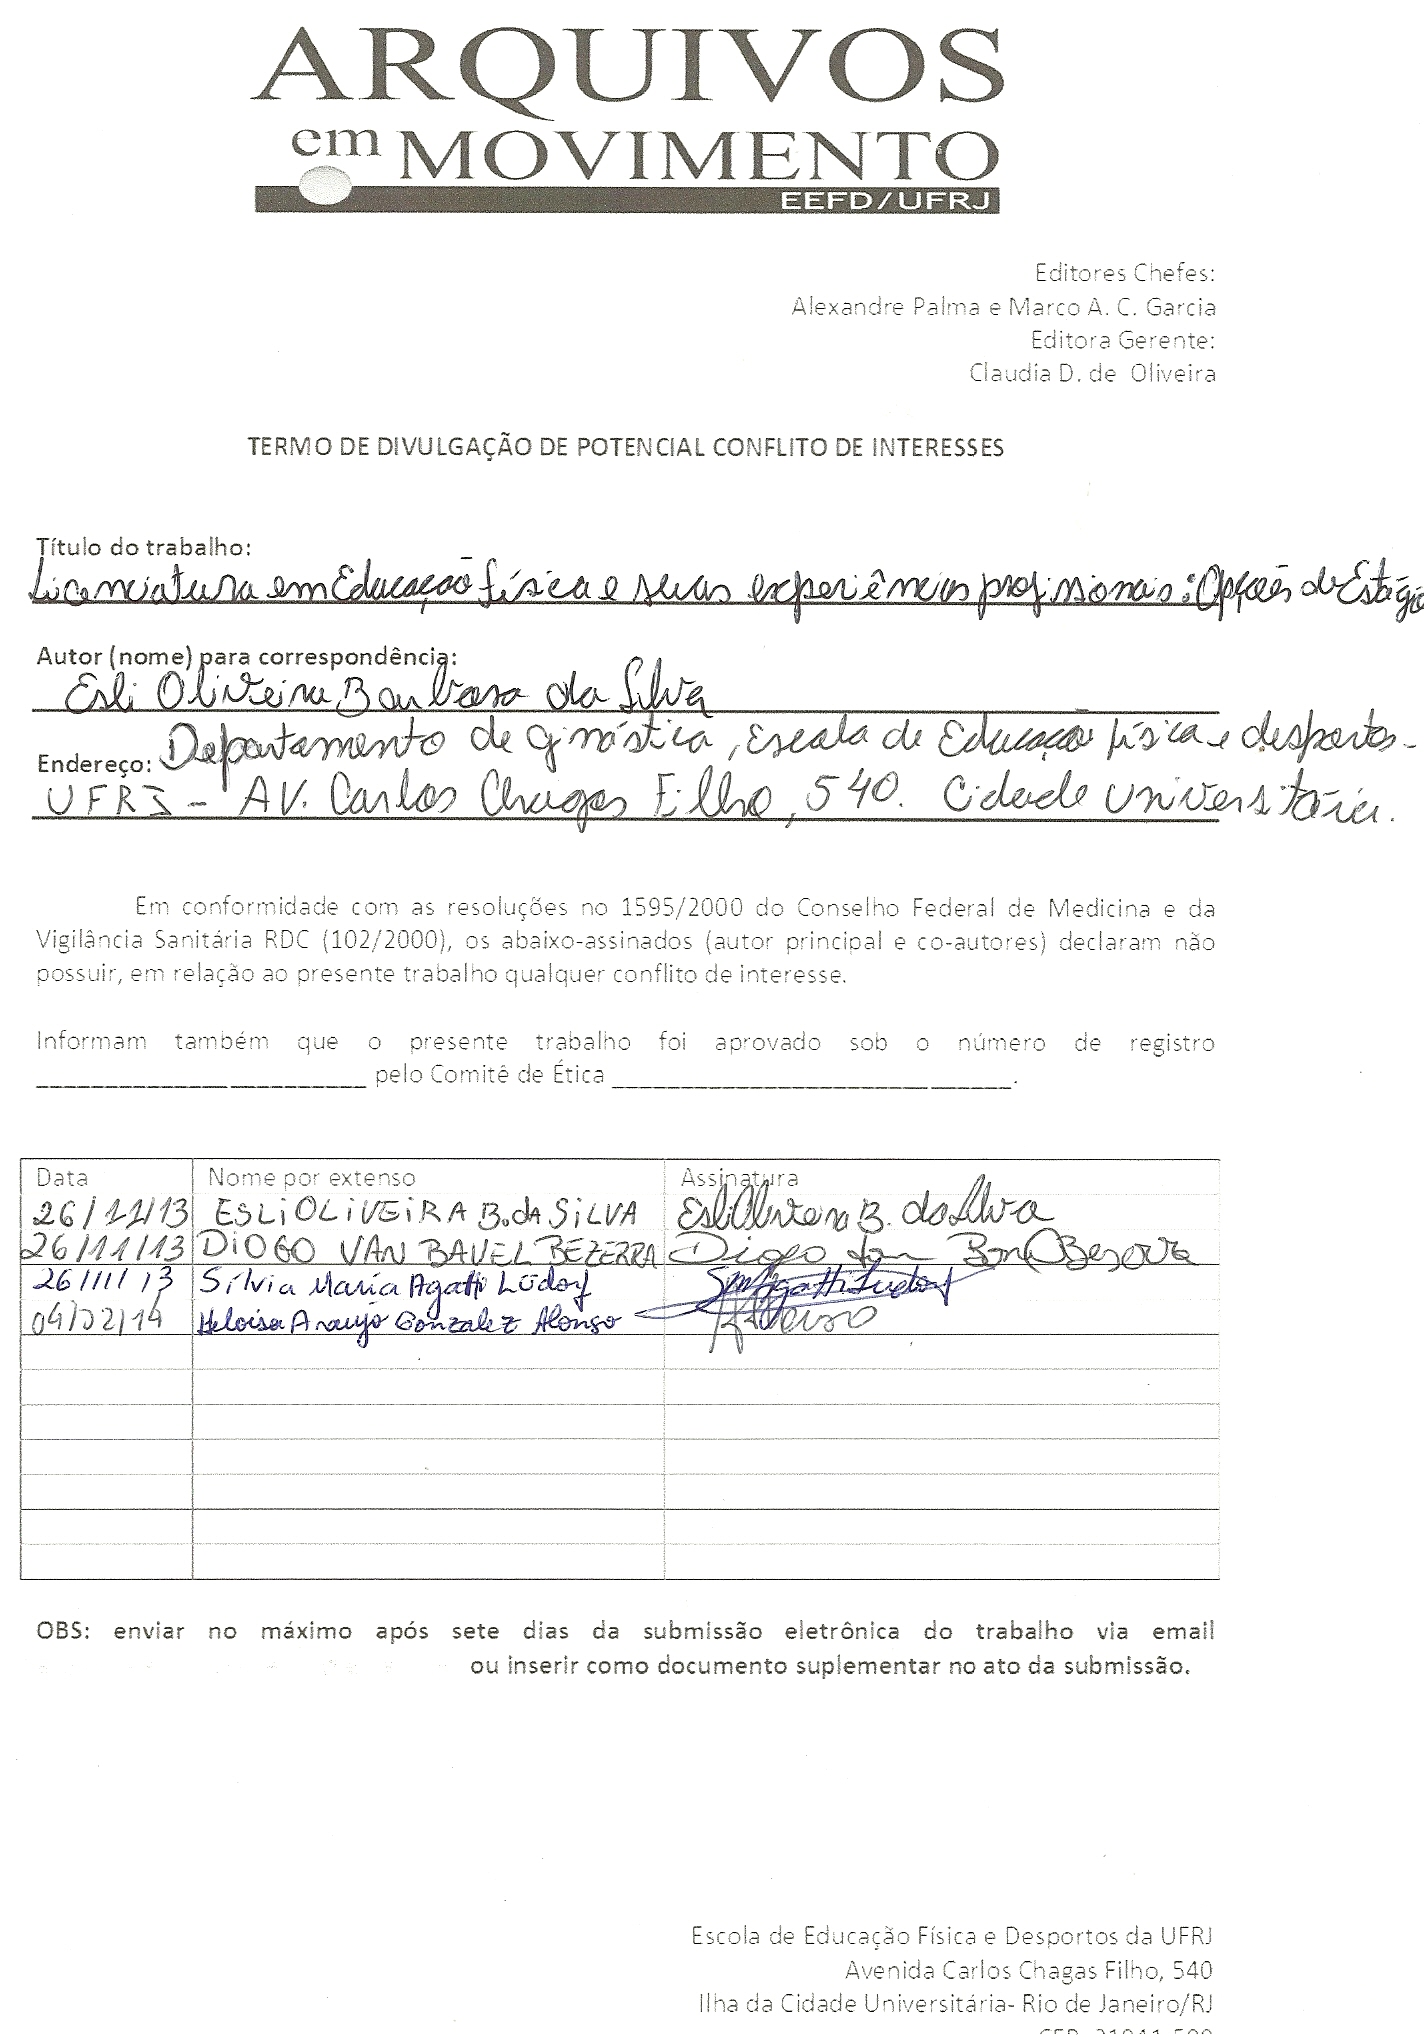 ARQUIVOS
em MOVIMENTO
EEFD/UFRJ
Editores Chefes:
Alexandre Palma e Marco A. C. Garcia
Editora Gerente:
Claudia D. de Oliveira
TERMO DE DIVULGAÇÃO DE POTENCIAL CONFLITO DE INTERESSES
Título do trabalho:
Licenciatura em Educação física e suas experiências profissionais: Opções de Estágio
Autor (nome) para correspondência:
Esli Oliveira Barbosa da Silva
Endereço: Departamento de ginástica, Escola de Educação física e desportos -
UFRJ - AV. Carlos Chagas Filho, 540. Cidade Universitária.
Em conformidade com as resoluções no 1595/2000 do Conselho Federal de Medicina e da
Vigilância Sanitária RDC (102/2000), os abaixo-assinados (autor principal e co-autores) declaram não
possuir, em relação ao presente trabalho qualquer conflito de interesse.
Informam também que o presente trabalho foi aprovado sob o número de registro
________________________ pelo Comitê de Ética _____________________________.
Data Nome por extenso Assinatura
26/11/13 ESLI OLIVEIRA B. DA SILVA Esli Oliveira B. da Silva
26/11/13 DIOGO VAN BAVEL BEZERRA Diogo van Bavel Bezerra
26/11/13 Sílvia Maria Agatti Lüdorf Agatti Ludorf
04/02/14 Heloisa Araujo Gonzalez Alonso HAlonso
OBS: enviar no máximo após sete dias da submissão eletrônica do trabalho via email
ou inserir como documento suplementar no ato da submissão.
Escola de Educação Física e Desportos da UFRJ
Avenida Carlos Chagas Filho, 540
Ilha da Cidade Universitária- Rio de Janeiro/RJ
CEP. 21941-599